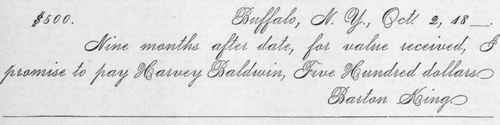 $500. Buffalo, N. Y., Oct. 2, 18__.
Nine months after date, for value received, I
promise to pay Harvey Baldwin, Five Hundred dollars
Barton King